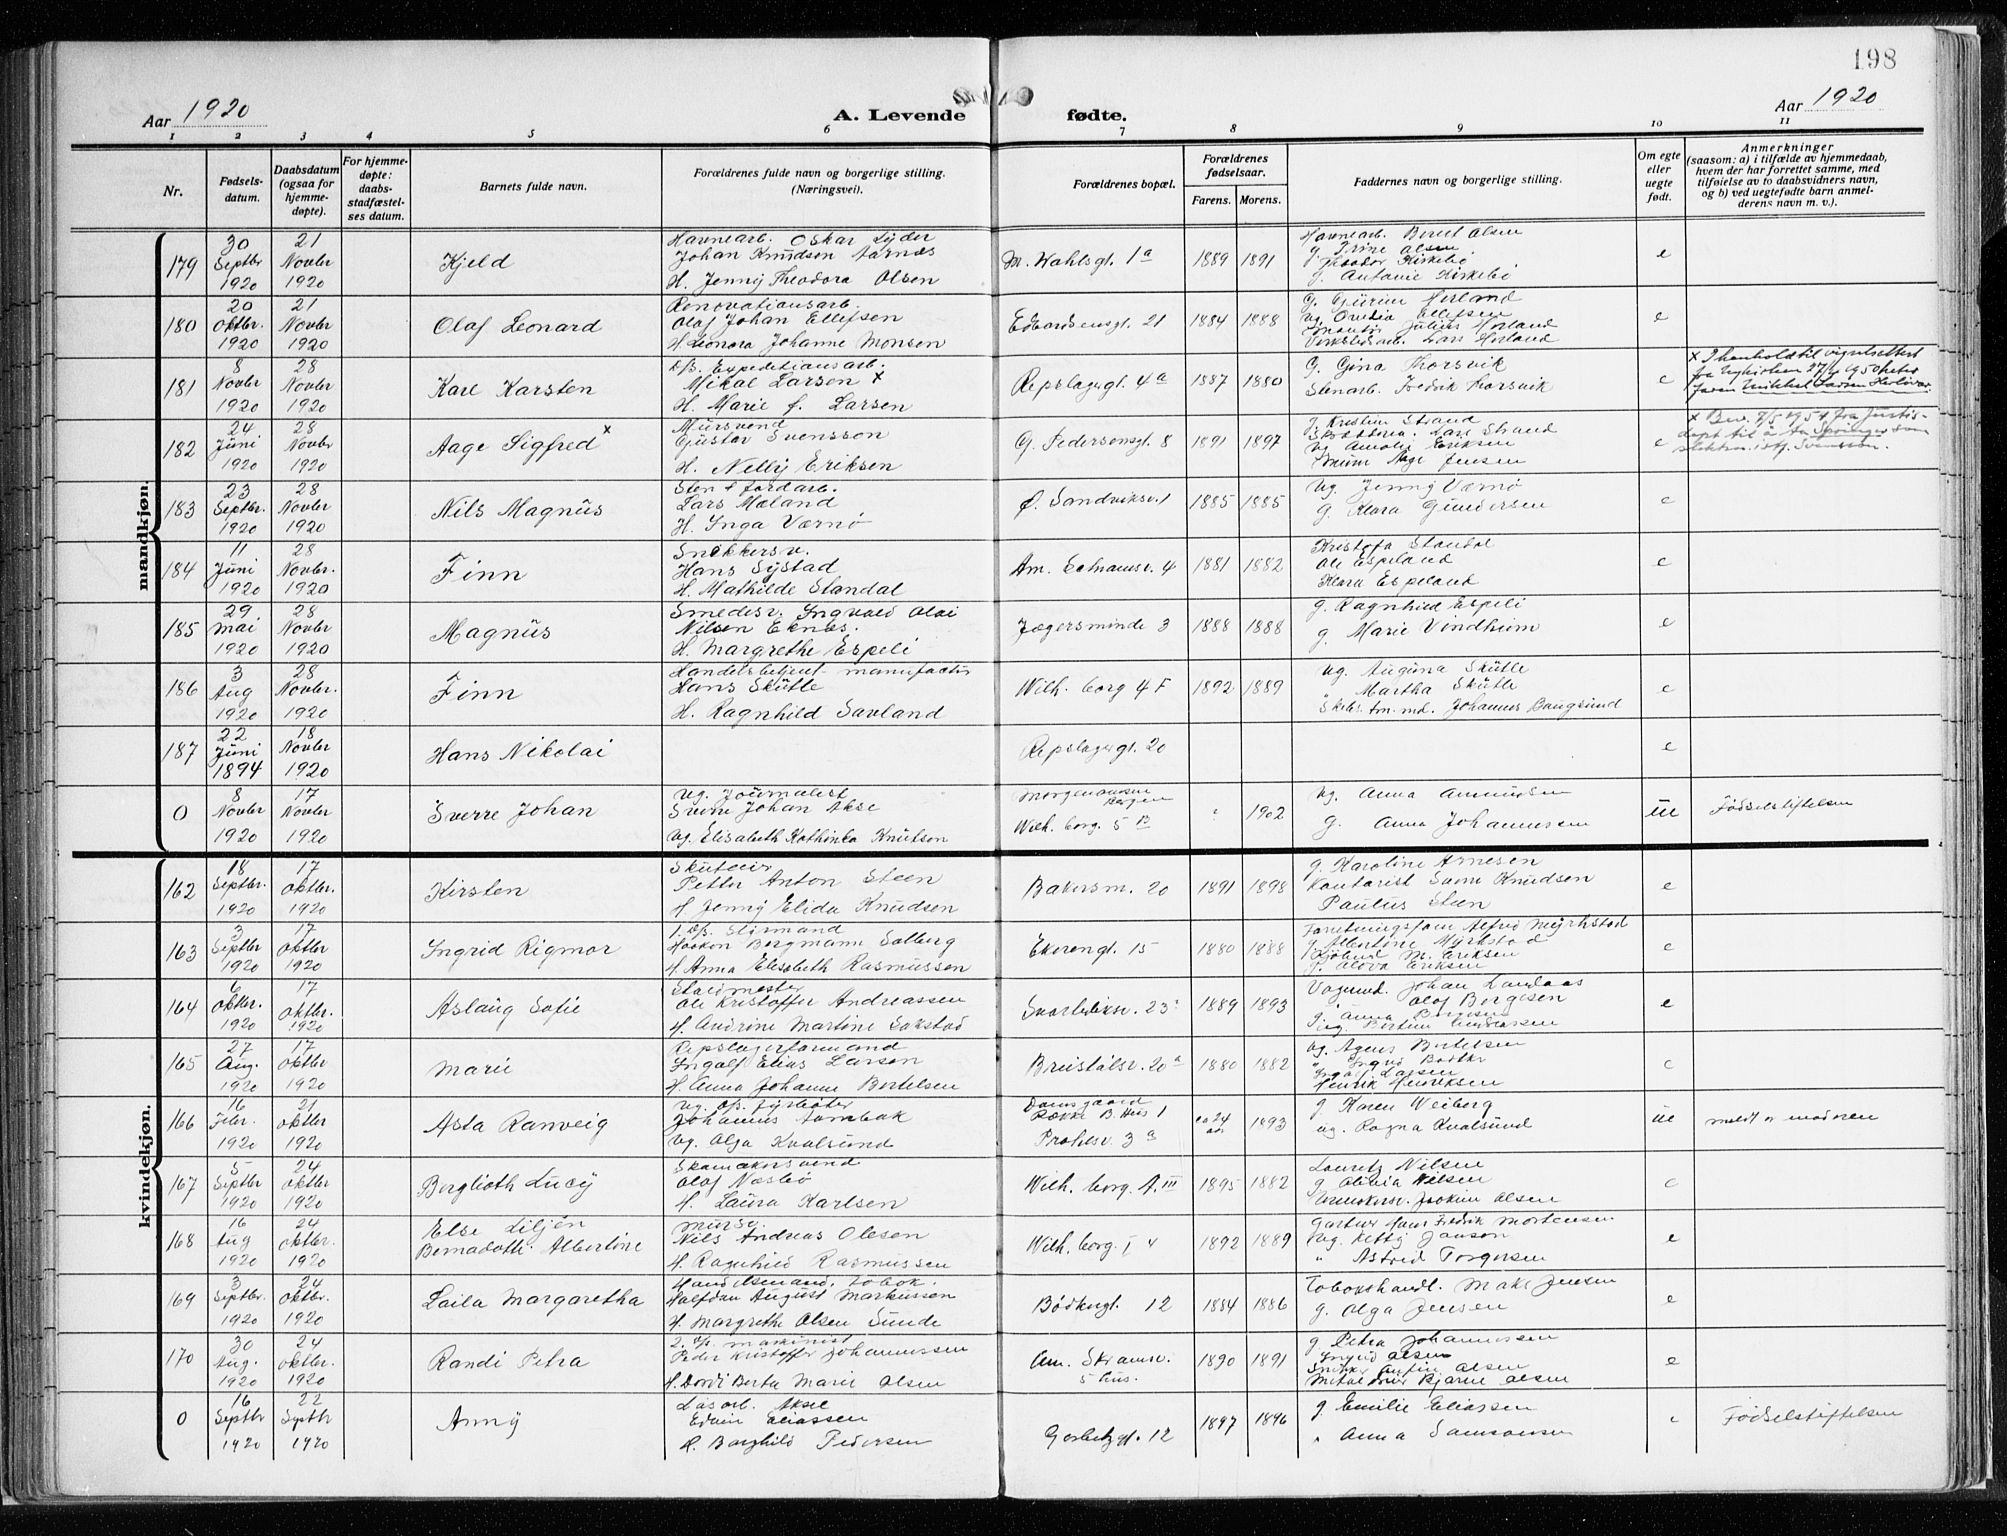 198
Aar 1920
A. Levende fødte.
Aar 1920
1 2 3 4 5 6 7 8 9 10 11
Nr.
Fødsels-
datum.
Daabsdatum
(ogsaa for
hjemme-
døpte).
For hjemme-
døpte:
daabs-
stadfæstel-
ses datum.
Barnets fulde navn.
Forældrenes fulde navn og borgerlige stilling.
(Næringsvei).
Forældrenes bopæl.
Forældrenes
fødselsaar.
Farens. Morens.
Faddernes navn og borgerlige stilling.
Om egte
eller
uegte
født.
Anmerkninger
(saasom: a) i tilfælde av hjemmedaab,
hvem der har forrettet samme, med
tilføielse av to daabsvidners navn,
og b) ved uegtefødte barn anmel-
derens navn m. v.).
mandkjøn.
179
30
Septbr
1920
21
Novbr
1920
Kjeld
Havnearb. Oskar Lyder
Johan Knudsen Aarnæs
H. Jenny Theodora Olsen
M. Wahlsgt. 1a
1889 1891
Havnearb. Berent Olsen
g. Trine Olsen
Theodor Kirkebø
g. Antonie Kirkebø
e
180
20
Oktbr.
1920
21
Novbr
1920
Olaf Leonard
Renovationsarb.
Olaf Johan Ellefsen
H. Leonora Johanne Monsen
Edvardsensgt. 21
1884 1888
Ug. Ovidia Ellefsen
Montør Julius Horland
Verkstedsarb. Lars Horland
e
181
8
Novbr
1920
28
Novbr
1920
Karl Karsten
D/s. Expeditionsarb.
Mikal Larsen x
H. Marie f. Larsen
Repslagergt. 4a
1887 1880
G. Gina Thorsvik
Stenarb. Fredrik Thorsvik
e
x I henhold til vigselsattest
182
24
Juni
1920
28
Novbr
1920
Aage Sigfred x
Mursvend
Gustav Svensson
H. Nelly Eriksen
G. Pedersensgt. 8
1891 1897
g. Kristin Strand
Lars Strand
Ug. Amalie Eriksen
Aage Jensen
e
183
23
Septbr.
1920
28
Novbr
1920
Nils Magnus
Sten & jordarb.
Lars Mæland
H. Inga Værnø
Ø. Sandviksv. 1
1885 1885
Ug. Jenny Værnø
g. Klara Gundersen
e
184
11
Juni
1920
28
Novbr.
1920
Finn
Snekkersv.
Hans Systad
H. Mathilde Standal
Am. Schramsv. 4
1881 1882
Kristofa Standal
Ole Espeland
Klara Espeland
e
185
29
Mai
1920
28
Novbr
1920
Magnus
Smedesv. Ingvald Olai
Nilsen Eknæs.
H. Margrethe Espeli
Jægersminde 3
1888 1888
g. Ragnhild Espeli
g. Marie Vindheim
e
186
3
Aug
1920
28
Novbr.
1920
Finn
Handelsbetjent - manufactur
Hans Skutle
H. Ragnhild Savland
Wilh. borg 4 F
1892 1889
Ug. Augusta Skutle
Martha Skutle
Johannes Baugsund
e
187
22
Juni
1894
18
Novbr
1920
Hans Nikolai
Repslagergt. 20
e
0
8
Novbr
1920
17
Novbr
1920
Sverre Johan
Ug. Journalist
Svein Johan Akse
Ug. Elisabeth Kathinka Knutson
Morgenavisen
Bergen
Wilh. borg. 5 B
1902
Ug. Anna
g. Anna Johannessen
ue
Fødselstiftelsen
kvindekjøn.
162
18
Septbr.
1920
17
Oktbr.
1920
Kirsten
Skuteeier
Petter Anton Steen
H. Jenny Elida Knudsen
Bakersm. 20
1891 1898
g. Karoline Arnesen
Kontorist Sam Knudsen
Paulus Steen
e
163
3
Septbr
1920
17
Oktbr
1920
Ingrid Rigmor
1. D/s. Styrmand
Haakon Bergmann Solberg
H. Anna Elisabeth Rasmussen
Ekerengt. 15
1880 1888
Forretningsform Alfred Myrkstad
g. Albertine Myrkstad
Kjøbmd M. Eriksen
g. Alova Eriksen
e
164
6
Oktbr.
1920
17
Oktbr.
1920
Aslaug Sofie
Staldmester
Ole Kristoffer Andreassen
H. Andrine Martine Sakstad
Svartediksv. 23a
1889 1893
Vognmd. Johan Landaas
Olaf Børgesen
g. Anna Børgesen
e
165
27
Aug.
1920
17
Oktbr
1920
Marie
Repslagerformand
Ingolf Elias Larsen
H. Anna Johanne Bertelsen
Breistølsv. 20a
1880 1882
Ug. Agnes Bertelsen
Ingolf Larsen
Henrik Henriksen
e
166
16
Febr.
1920
21
Oktbr
1920
Asta Ranveig
Ug. D/s. fyrbøter
Johannes Lambak
Ug. Olga Kvalsund
Damsgaard
Række B. Hus 1
ca 24
aar
1893
g. Karen Weiberg
Ug. Ragna Kvalsund
ue
meldt v. moderen
167
5
Septbr
1920
24
Oktbr
1920
Berglioth Lucy
Skomakersvend
Olaf Næsbø
H. Laura Karlsen
Wilh. borg. A. III
1895 1882
Lauritz Nilsen
g. Olivia Nilsen
Joakim Olsen
e
168
16
Aug
1920
24
Oktbr.
1920
Else Liljén
Bernadotte Albertine
Mursv.
Nils Andreas Olesen
H. Ragnhild Rasmussen
Wilh. borg. I 4
1892 1889
Gartner Hans Fredrik Mortensen
Ug. Ketty Janson
" Astrid Torgersen
e
169
3
Septbr.
1920
24
Oktbr.
1920
Laila Margaretha
Handelsmand, tobak.
Halfdan August Markussen
H. Margrethe Olsen Sunde
Bødkergt. 12
1884 1886
Tobakshandl. Max Jensen
g. Olga Jensen
e
170
30
Aug.
1920
24
Oktbr.
1920
Randi Petra
2. D/s. maskinist
Peder Kristoffer Johannessen
H. Dordi Berta Marie Olsen
Am. Skramsv.
5 hus.
1890 1891
g. Petra Johannessen
Ingrid Olsen
Snekker Anton Olsen
Bjarne Olsen
e
0
16
Septbr
1920
22
Septbr
1920
Anny
Løsarb. Aksel
Edvin Eliassen
H. Borghild Pedersen
12
1897 1896
g. Emilie Eliassen
" Anna Samsonsen
e
Fødselstiftelsen